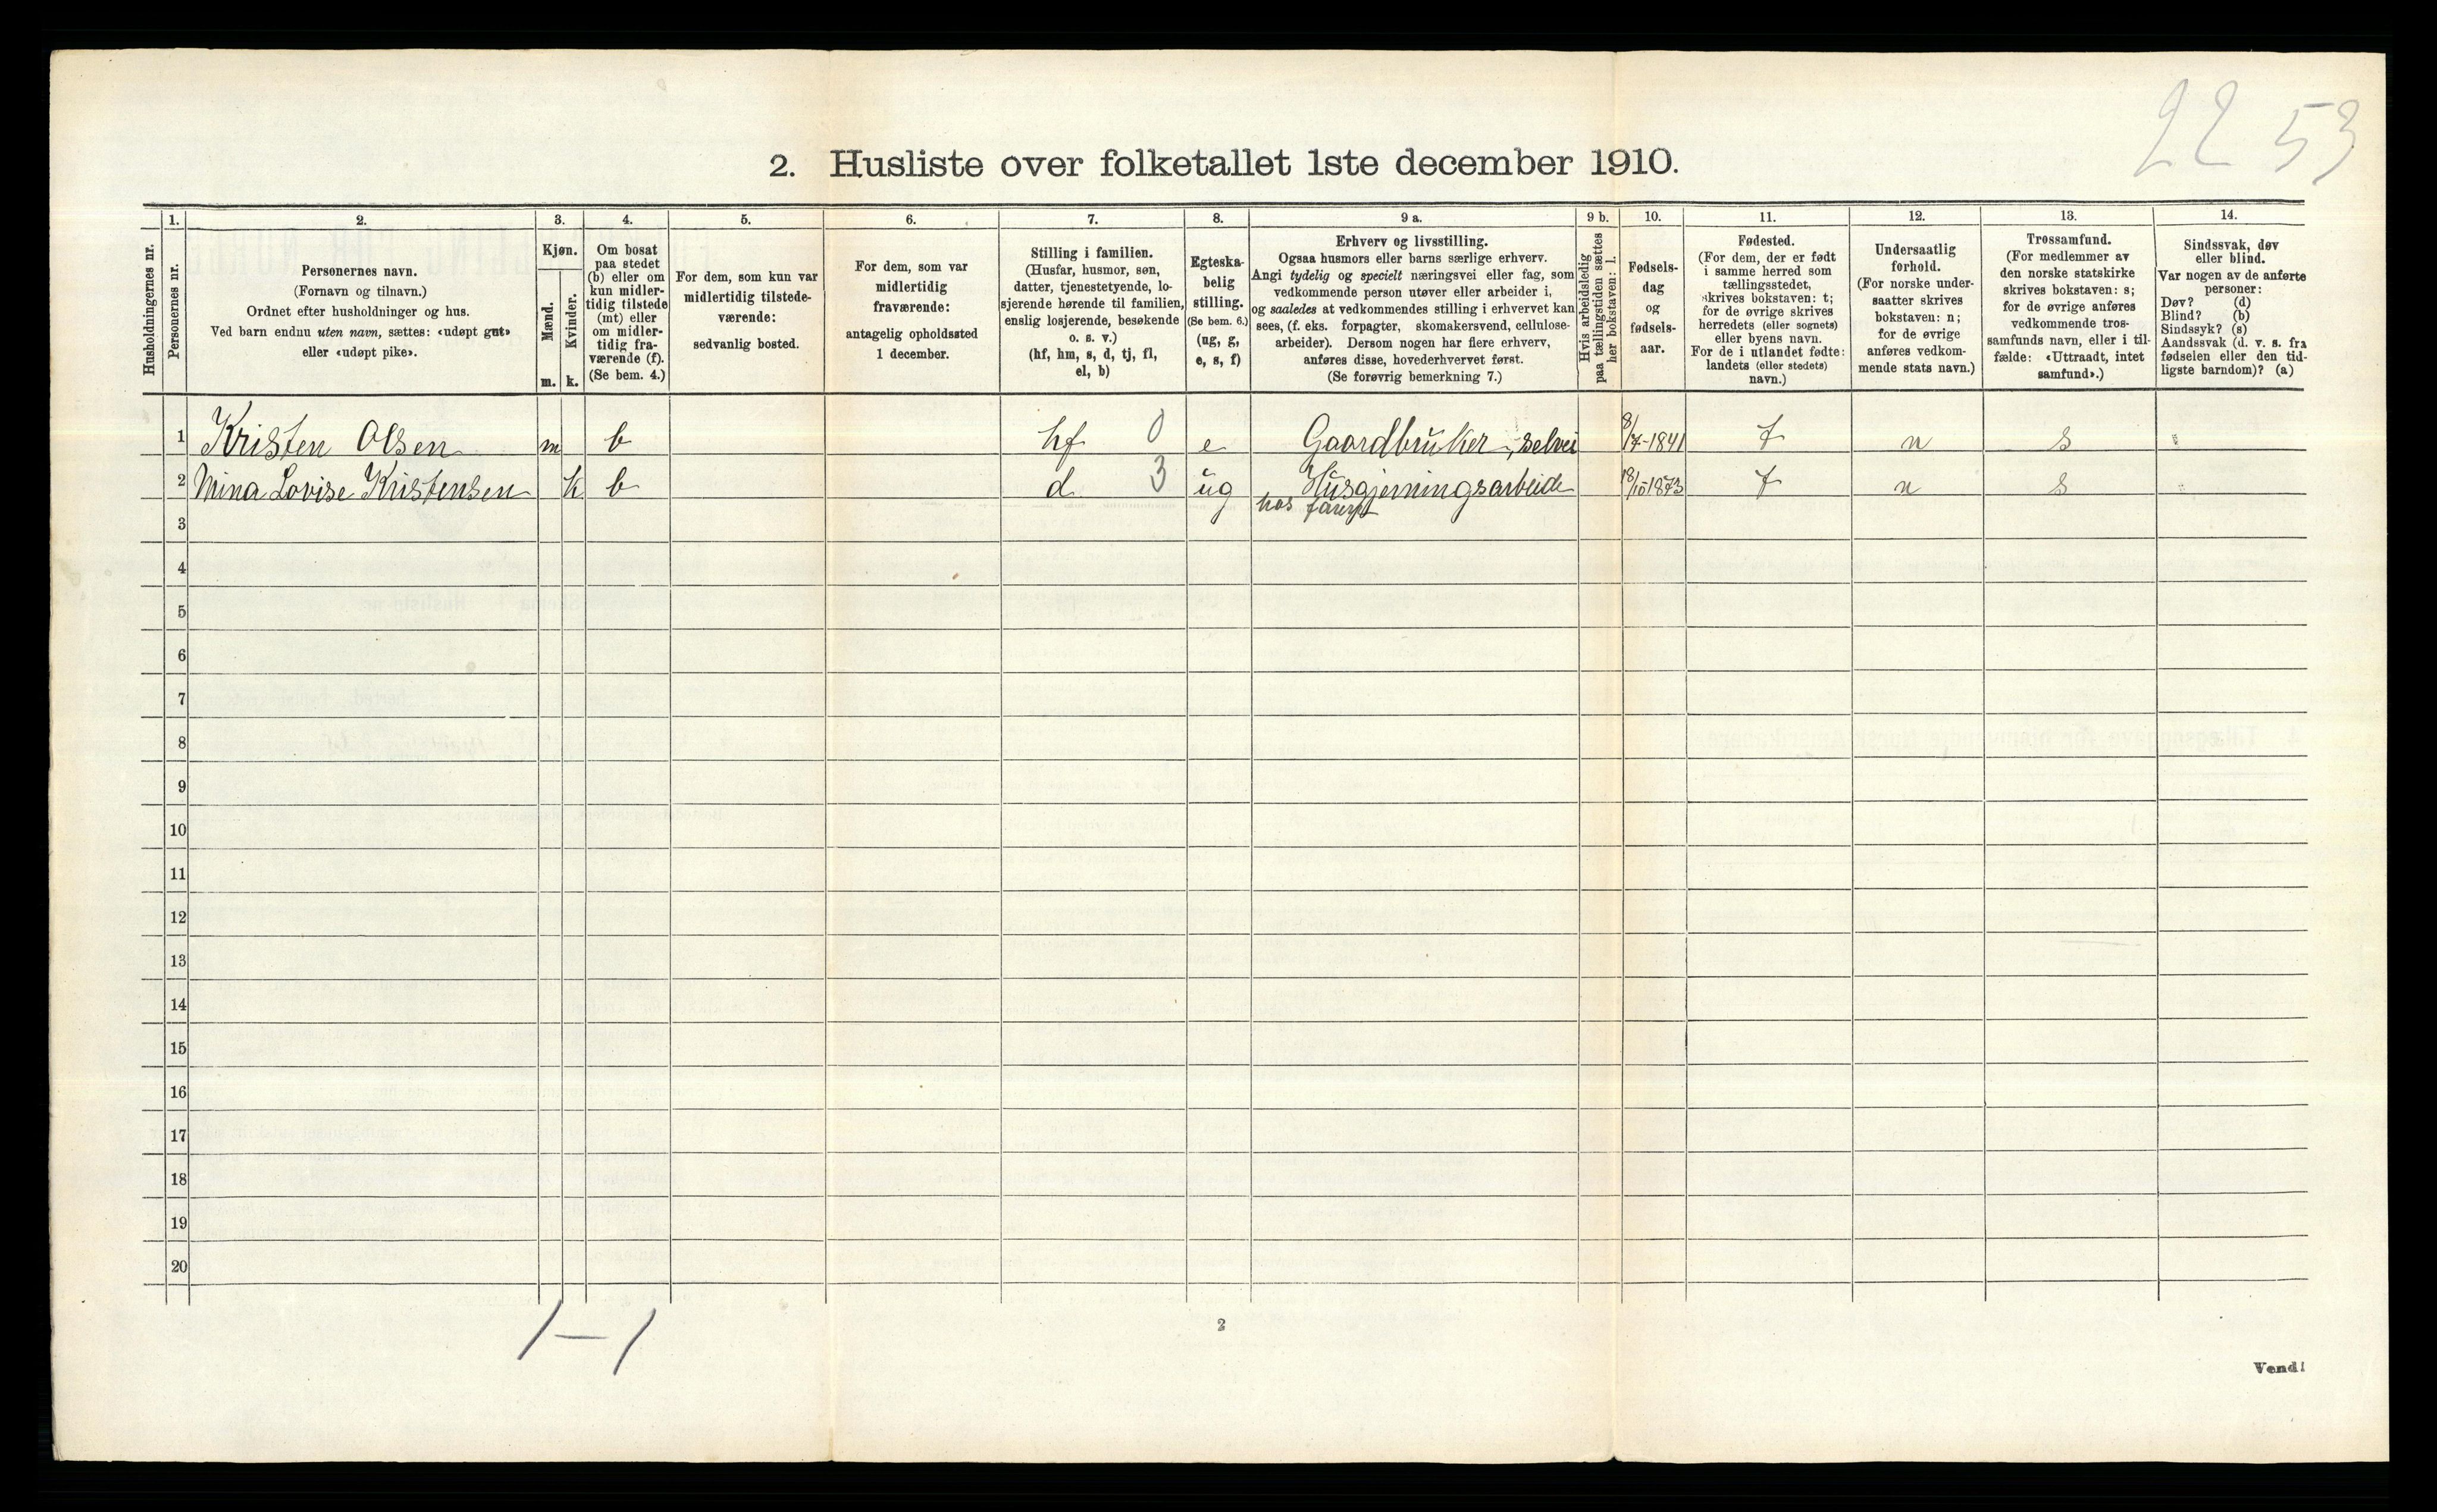 22 53
2. Husliste over folketallet 1ste december 1910.
Husholdningernes nr.
1.
Personernes nr.
2.
Personernes navn.
(Fornavn og tilnavn.)
Ordnet efter husholdninger og hus.
Ved barn endnu uten navn, sættes: «udøpt gut»
eller «udøpt pike».
3.
Kjøn.
Mænd.
Kvinder.
m. k.
4.
Om bosat
paa stedet
(b) eller om
kun midler-
tidig tilstede
(mt) eller
om midler-
tidig fra-
værende (f).
(Se bem. 4.)
5.
For dem, som kun var
midlertidig tilstede-
værende:
sedvanlig bosted.
6.
For dem, som var
midlertidig
fraværende:
antagelig opholdssted
1 december.
7.
Stilling i familien.
(Husfar, husmor, søn,
datter, tjenestetyende, lo-
sjerende hørende til familien,
enslig losjerende, besøkende
o. s. v.)
(hf, hm, s, d, tj, fl,
el, b)
8.
Egteska-
belig
stilling.
(Se bem. 6.)
(ug, g,
e, s, f)
9 a.
Erhverv og livsstilling.
Ogsaa husmors eller barns særlige erhverv.
Angi tydelig og specielt næringsvei eller fag, som
vedkommende person utøver eller arbeider i,
og saaledes at vedkommendes stilling i erhvervet kan
sees, (f. eks. forpagter, skomakersvend, cellulose-
arbeider). Dersom nogen har flere erhverv,
anføres disse, hovederhvervet først.
(Se forøvrig bemerkning 7.)
9 b.
Hvis arbeidsledig
paa tællingstiden sættes
her bokstaven: l.
10.
Fødsels-
dag
og
fødsels-
aar.
11.
Fødested.
(For dem, der er født
i samme herred som
tællingsstedet,
skrives bokstaven: t;
for de øvrige skrives
herredets (eller sognets)
eller byens navn.
For de i utlandet fødte:
landets (eller stedets)
navn.)
12.
Undersaatlig
forhold.
(For norske under-
saatter skrives
bokstaven: n;
for de øvrige
anføres vedkom-
mende stats navn.)
13.
Trossamfund.
(For medlemmer av
den norske statskirke
skrives bokstaven: s;
for de øvrige anføres
vedkommende tros-
samfunds navn, eller i til-
fælde: «Uttraadt, intet
samfund».)
14.
Sindssvak, døv
eller blind.
Var nogen av de anførte
personer:
Døv? (d)
Blind? (b)
Sindssyk? (s)
Aandssvak (d. v. s. fra
fødselen eller den tid-
ligste barndom)? (a)
1 Kristen Olsen m b hf 0 e Gaardbruker, selvei 8/7-1841 t n s
2 Mina Lovise Kristensen k b d 3 ug Husgjerningsarbeide 18/10 1873 t n s
hos
3
4
5
6
7
8
9
10
11
12
13
14
15
16
17
18
19
20
1—1
2
Vend!